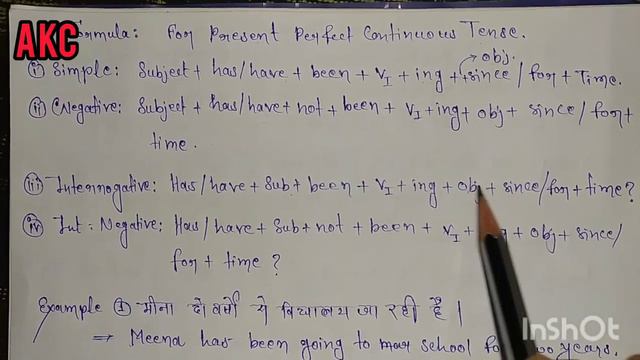 AKC Formula: For Present Perfect Continuous Tense.
obj.
(i) Simple: Subject + has/have + been + V₁ + ing + + since / for + Time.
(ii) Negative: Subject + has/have + not + been + V₁ + ing + obj + since / for +
time.
(iii) Interrogative: Has/have + Sub + been + V₁ + ing + obj + since/for + time?
(iv) Int: Negative: Has/have + Sub + not + been + V₁ + + obj + since/
for + time ?
Example ① मीना दो वर्षों से विद्यालय जा रही है।
⇒ Meena has been going to school for years.
InShOt